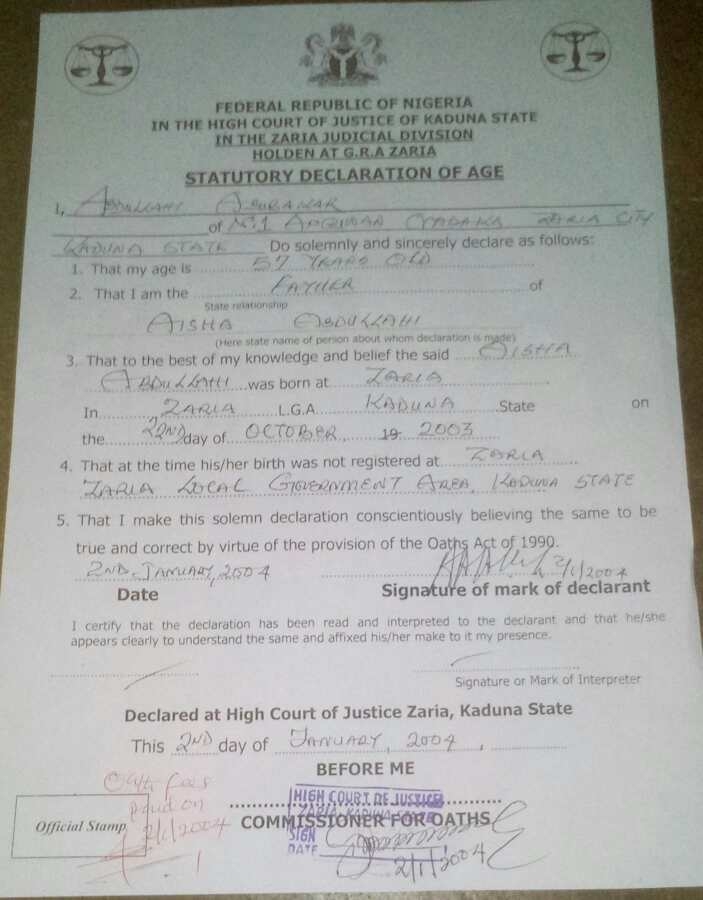 FEDERAL REPUBLIC OF NIGERIA
IN THE HIGH COURT OF JUSTICE OF KADUNA STATE
IN THE ZARIA JUDICIAL DIVISION
HOLDEN AT G.R.A ZARIA
STATUTORY DECLARATION OF AGE
I, ABDULLAHI ABUBAKAR
of No. 1 ANGUWAN ZARIA CITY
KADUNA STATE Do solemnly and sincerely declare as follows:
1. That my age is 57 YEARS OLD
2. That I am the FATHER of
State relationship
AISHA ABDULLAHI
(Here state name of person about whom declaration is made)
3. That to the best of my knowledge and belief the said AISHA
ABDULLAHI was born at ZARIA
In ZARIA L.G.A KADUNA State on
the 22ND day of OCTOBER 19 2003
4. That at the time his/her birth was not registered at ZARIA
ZARIA LOCAL GOVERNMENT AREA, KADUNA STATE
5. That I make this solemn declaration conscientiously believing the same to be
true and correct by virtue of the provision of the Oaths Act of 1990.
2ND JANUARY, 2004 2/1/2004
Date Signature of mark of declarant
I certify that the declaration has been read and interpreted to the declarant and that he/she
appears clearly to understand the same and affixed his/her make to it my presence.
Signature or Mark of Interpreter
Declared at High Court of Justice Zaria, Kaduna State
This 2ND day of JANUARY, 2004,
BEFORE ME
Oath fees
paid on
2/1/2004
Official Stamp
HIGH COURT OF JUSTICE
ZARIA, KADUNA STATE
COMMISSIONER FOR OATHS
SIGN
DATE 2/1/2004